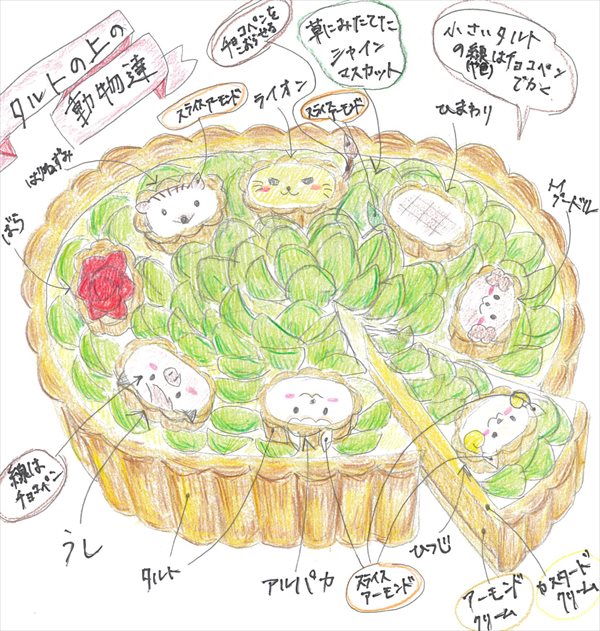 タルトの上の
動物達
チョコペンを
こおらせる
草にみたてた
シャイン
マスカット
小さいタルト
の線はチョコペン
(色)
でかく
スライスアーモンド
ライオン
スライスアーモンド
ひまわり
はりねずみ
トイ
プードル
ばら
線は
チョコペン
うし
タルト
アルパカ
スライス
アーモンド
ひつじ
アーモンド
クリーム
カスタード
クリーム